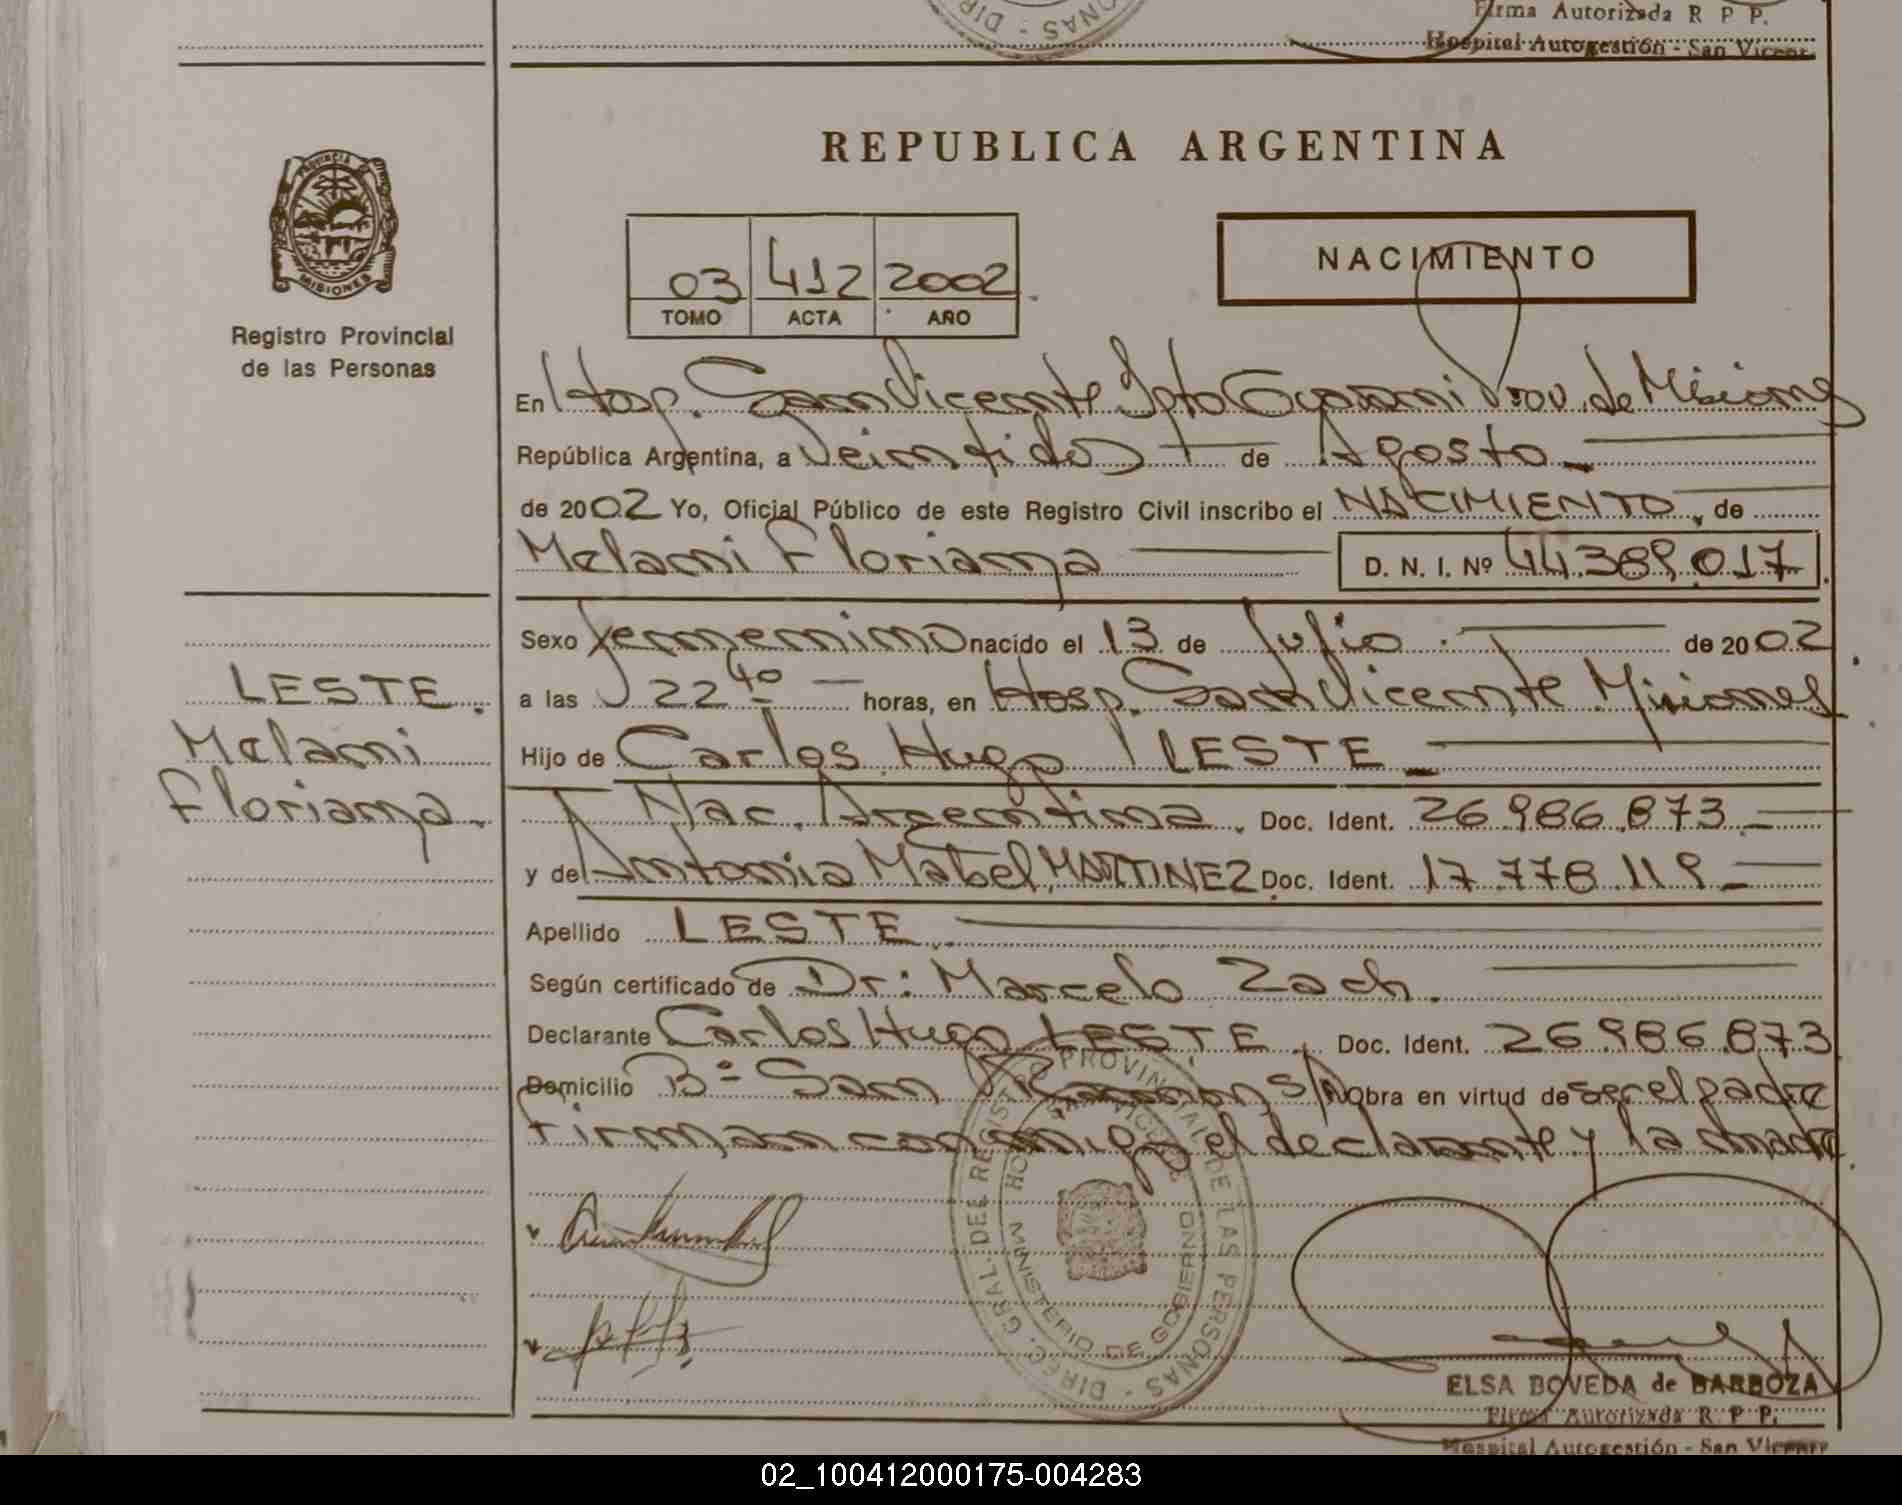 Firma Autorizada R P P.
Hospital Autogestión - San Vicente
DIREC - SONAS
PROVINCIA
MISIONES
Registro Provincial
de las Personas
REPUBLICA ARGENTINA
03 412 2002
TOMO ACTA AÑO
NACIMIENTO
En Hosp. San Vicente Dpto Guarani Prov. de Misiones
República Argentina, a Veintidos de Agosto
de 2002 Yo, Oficial Público de este Registro Civil inscribo el NACIMIENTO, de
Melani Floriana D. N. I. Nº 44.389.017
LESTE.
Melani
Floriana.
Sexo femenino nacido el 13 de Julio de 2002
a las 22 40 horas, en Hosp. San Vicente Misiones
Hijo de Carlos Hugo LESTE
Nac. Argentina. Doc. Ident. 26.986.873
y de Antonia Mabel MARTINEZ Doc. Ident. 17.778.119
Apellido LESTE.
Según certificado de Dr: Marcelo Zach.
Declarante Carlos Hugo LESTE, Doc. Ident. 26.986.873
Domicilio Bº San Ramon S/N Obra en virtud de ser el padre
firman conmigo el declarante y la madre.
DIREC. GRAL. DEL REGISTRO PROVINCIAL DE LAS PERSONAS
MINISTERIO DE GOBIERNO
ELSA BOVEDA de BARBOZA
Firma Autorizada R P P.
Hospital Autogestión - San Vicente
02_100412000175-004283